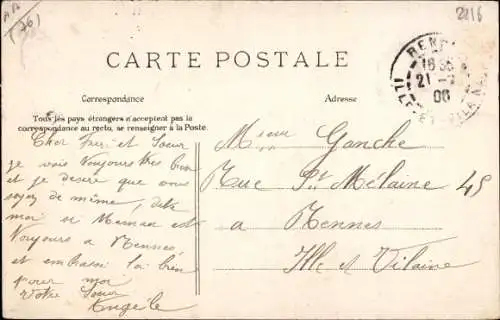 AA
(76)
2216
CARTE POSTALE
RENNES
18 35
21 -
06
ILLE-ET-VILAINE
Correspondance
Adresse
Tous les pays étrangers n'acceptent pas la
correspondance au recto, se renseigner à la Poste.
Cher Frer et Soeur
je vais toujours tres bien
et je desire que vous
soyez de même, dite
moi si Maman est
toujours a Rennes
et embrassé la bien
pour moi
Votre Soeur
Angèle
Msieur Ganche
Rue St Mélaine 45
a Rennes
Ille et Vilaine